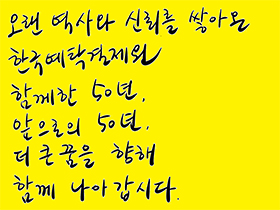 오랜 역사와 신뢰를 쌓아온
한국예탁결제원
함께한 50년,
앞으로의 50년,
더 큰 꿈을 향해
함께 나아갑시다.